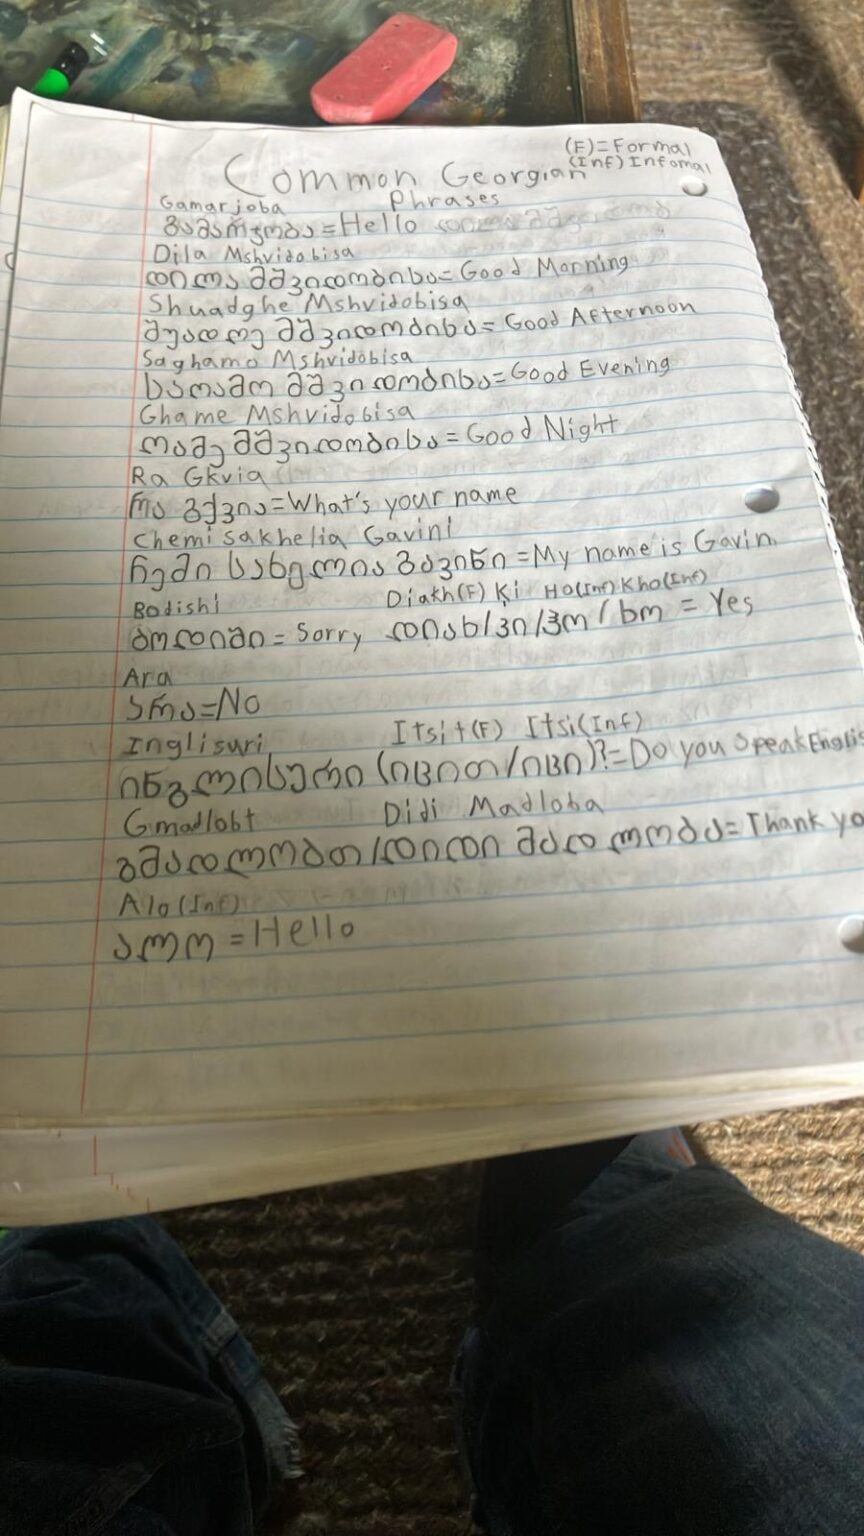 (F)=Formal
(Inf) Infomal
Common Georgian
Phrases
Gamarjoba
გამარჯობა=Hello
Dila Mshvidobisa
დილა მშვიდობისა=Good Morning
Shuadghe Mshvidobisa
შუადღე მშვიდობისა=Good Afternoon
Saghamo Mshvidobisa
საღამო მშვიდობისა=Good Evening
Ghame Mshvidobisa
ღამე მშვიდობისა=Good Night
Ra Gkvia
რა გქვია=What's your name
Chemi sakhelia Gavini
ჩემი სახელია გავინი=My name is Gavin
Bodishi Diakh(F) Ki Ho(Inf) Kho(Inf)
ბოდიში=Sorry დიახ/კი/ჰო/ხო = Yes
Ara
არა=No
Inglisuri Itsit(F) Itsi(Inf)
ინგლისური (იცით/იცი)?=Do you speak Englis
Gmadlobt Didi Madloba
გმადლობთ/დიდი მადლობა=Thank yo
Alo(Inf)
ალო =Hello